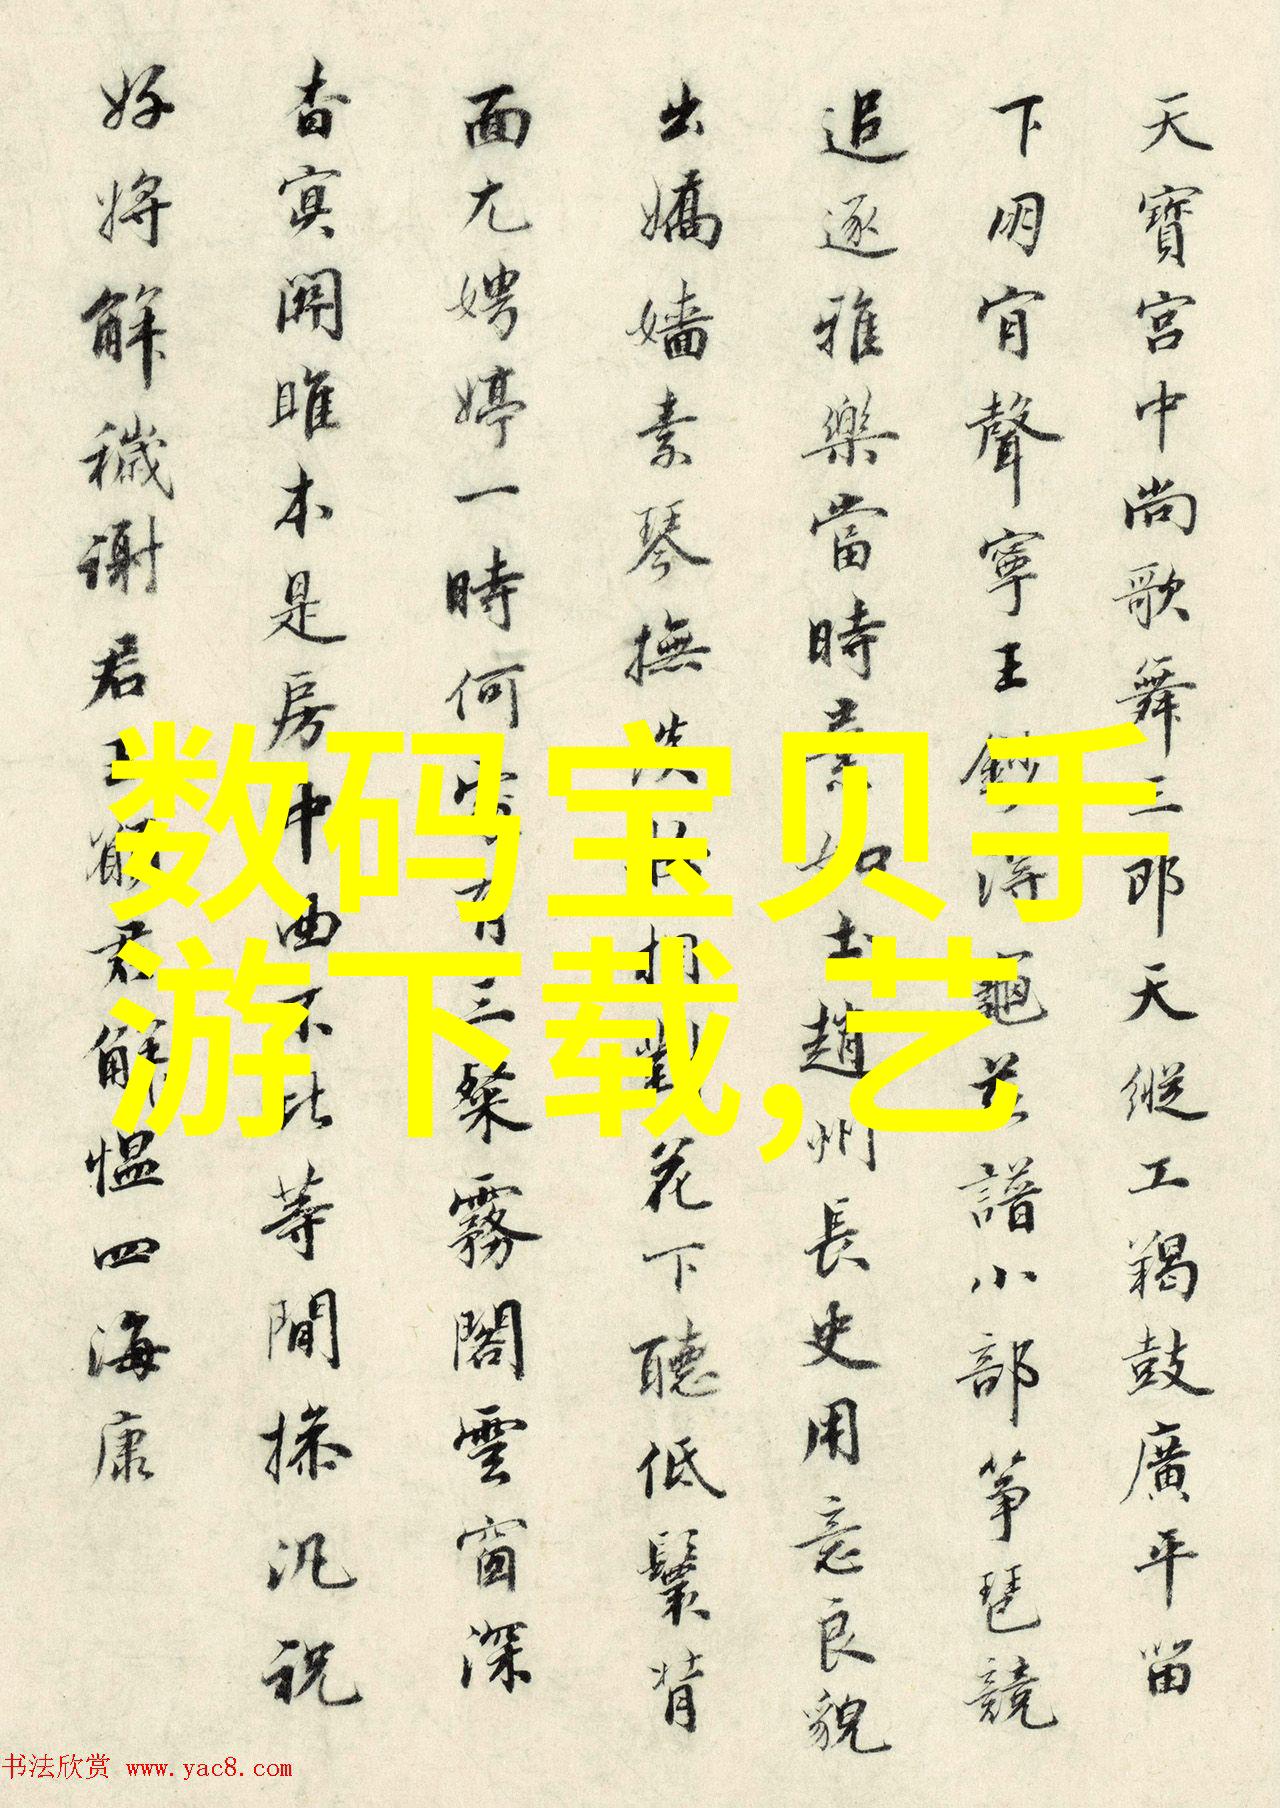 天寶宮中尚歌舞三郎天縱工羯鼓廣平笛
下明宵聲寧王
龜茲譜小部箏琶競
追逐雅樂當時
趙州長史用意良貌
出嬌嬙素琴撫
花下聽低鬟背
面尤娉婷一時何
有三粲霧閣雲窗深
杳冥關雎本是房中曲不比等閒操汎祝
好將解穢謝君
君解慍四海康
数码宝贝手
游下载,艺
书法欣赏 www.yac8.com